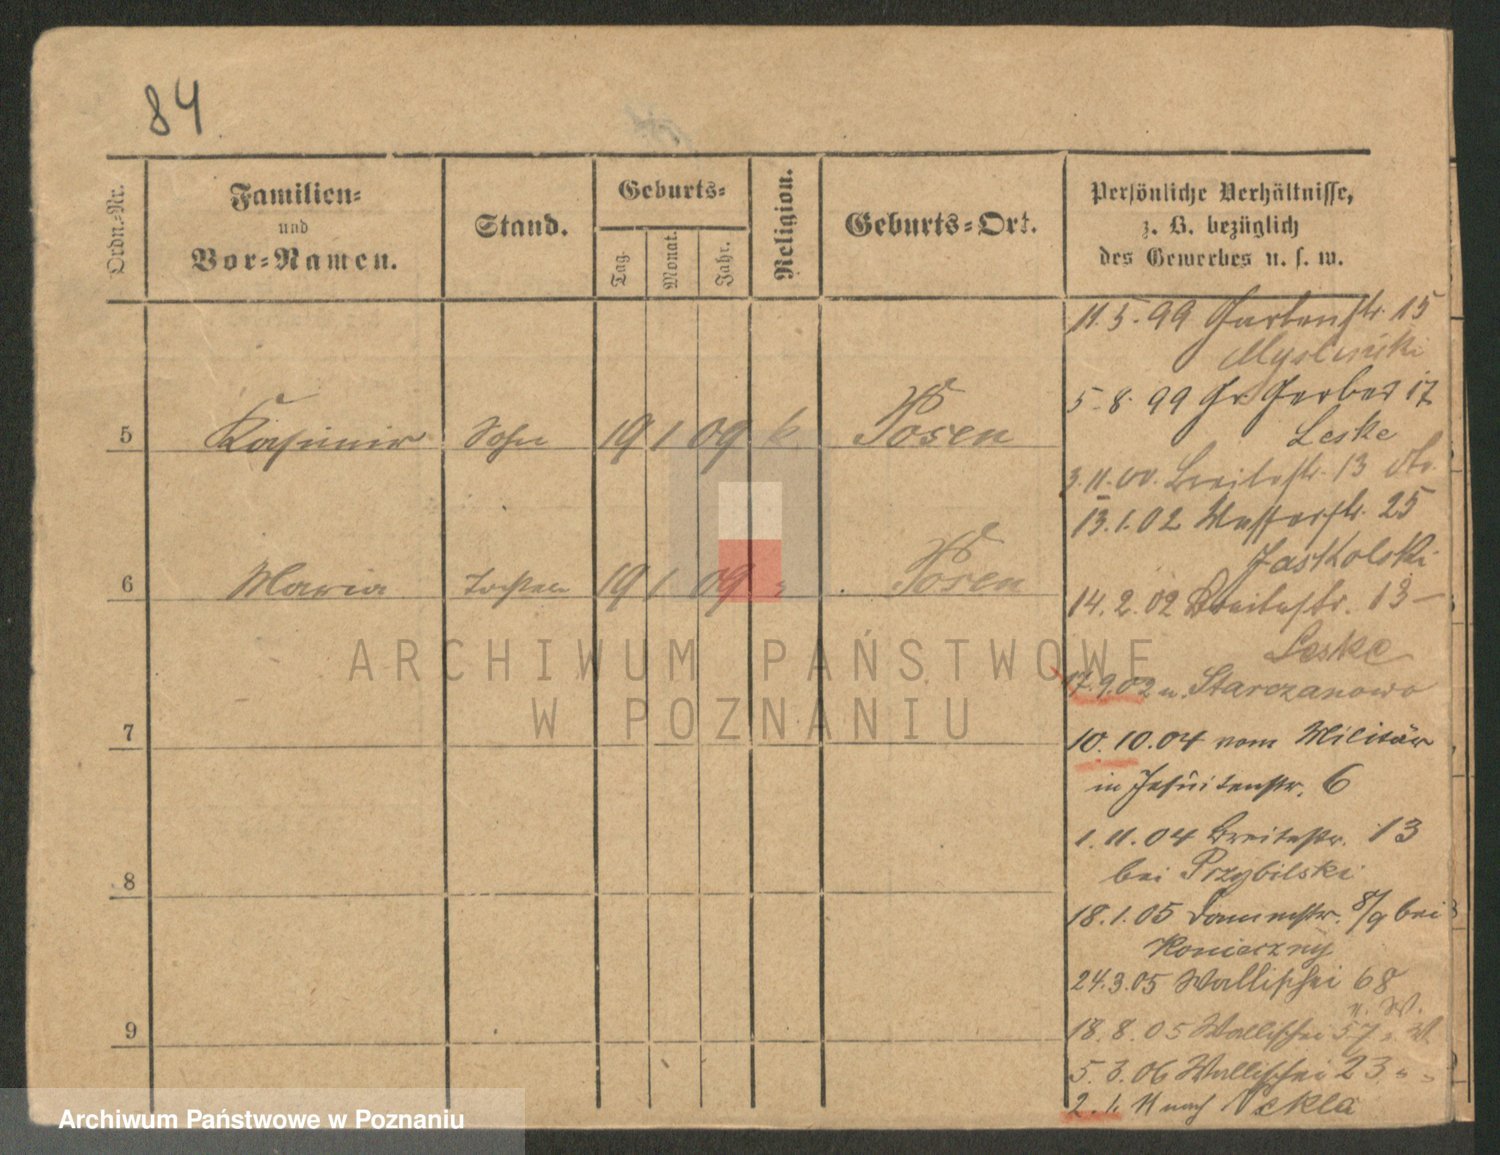 84
Ordn.-Nr.
Familien-
und
Vor-Namen.
Stand.
Geburts-
Tag.
Monat.
Jahr.
Religion.
Geburts-Ort.
Persönliche Verhältnisse,
z. B. bezüglich
des Gewerbes u. s. w.
5 Kasimir Sohn 19 1 09 k. Posen
6 Maria Tochter 19 1 09 " Posen
7
8
9
11.5.99 Gartenstr. 15
5.8.99 Gr. Gerber 17
Leske
3.11.00. Breitestr. 13
13.1.02 Wasserstr. 25
Jaskolski
14.2.02 Breitestr. 13 -
Leske
17.9.02 n. Starczanowo
10.10.04 vom Militär
in Jesuitenstr. 6
1.11.04 Breitestr. 13
bei Przybilski
18.1.05 Dammstr. 8/9 bei
Konieczny
24.3.05 Wallischei 68
18.8.05 Wallischei 57
5.3.06 Wallischei 23
2.1.11 nach Nekla
ARCHIWUM PAŃSTWOWE
W POZNANIU
Archiwum Państwowe w Poznaniu